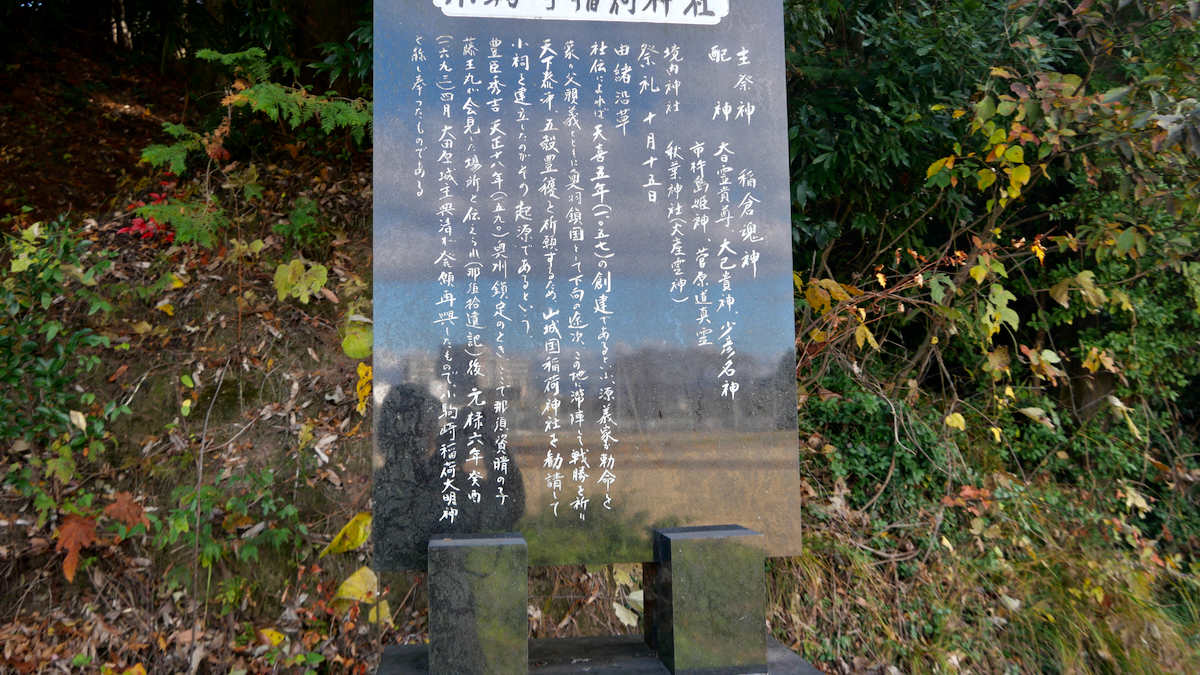 稲荷神社
主祭神 稲倉魂神
配神 香霊貴尊、大己貴神、少彦名神
市杵島姫神、菅原道真霊
境内神社 秋葉神社(火産霊神)
祭礼 十月十五日
由緒沿革
社伝によれば天喜五年(一〇五七)の創建であるといふ、源義家が勅命と
蒙り父頼義とともに奥羽鎮国として下向の途次、この地に滞陣して戦勝を祈り
天下泰平、五穀豊穣を祈願するため、山城国稲荷神社を勧請して
小祠を建立したのがその起源であるという。
豊臣秀吉天正十八年(一五九〇)奥州鎮定のとき、ここで那須資晴の子
藤王丸が会見した場所と伝えられ(那須拾遺記)後、元禄六年癸酉
(一六九三)四月大田原城主典清が発願再興したもので、小駒崎稲荷大明神
と称し奉ったものである